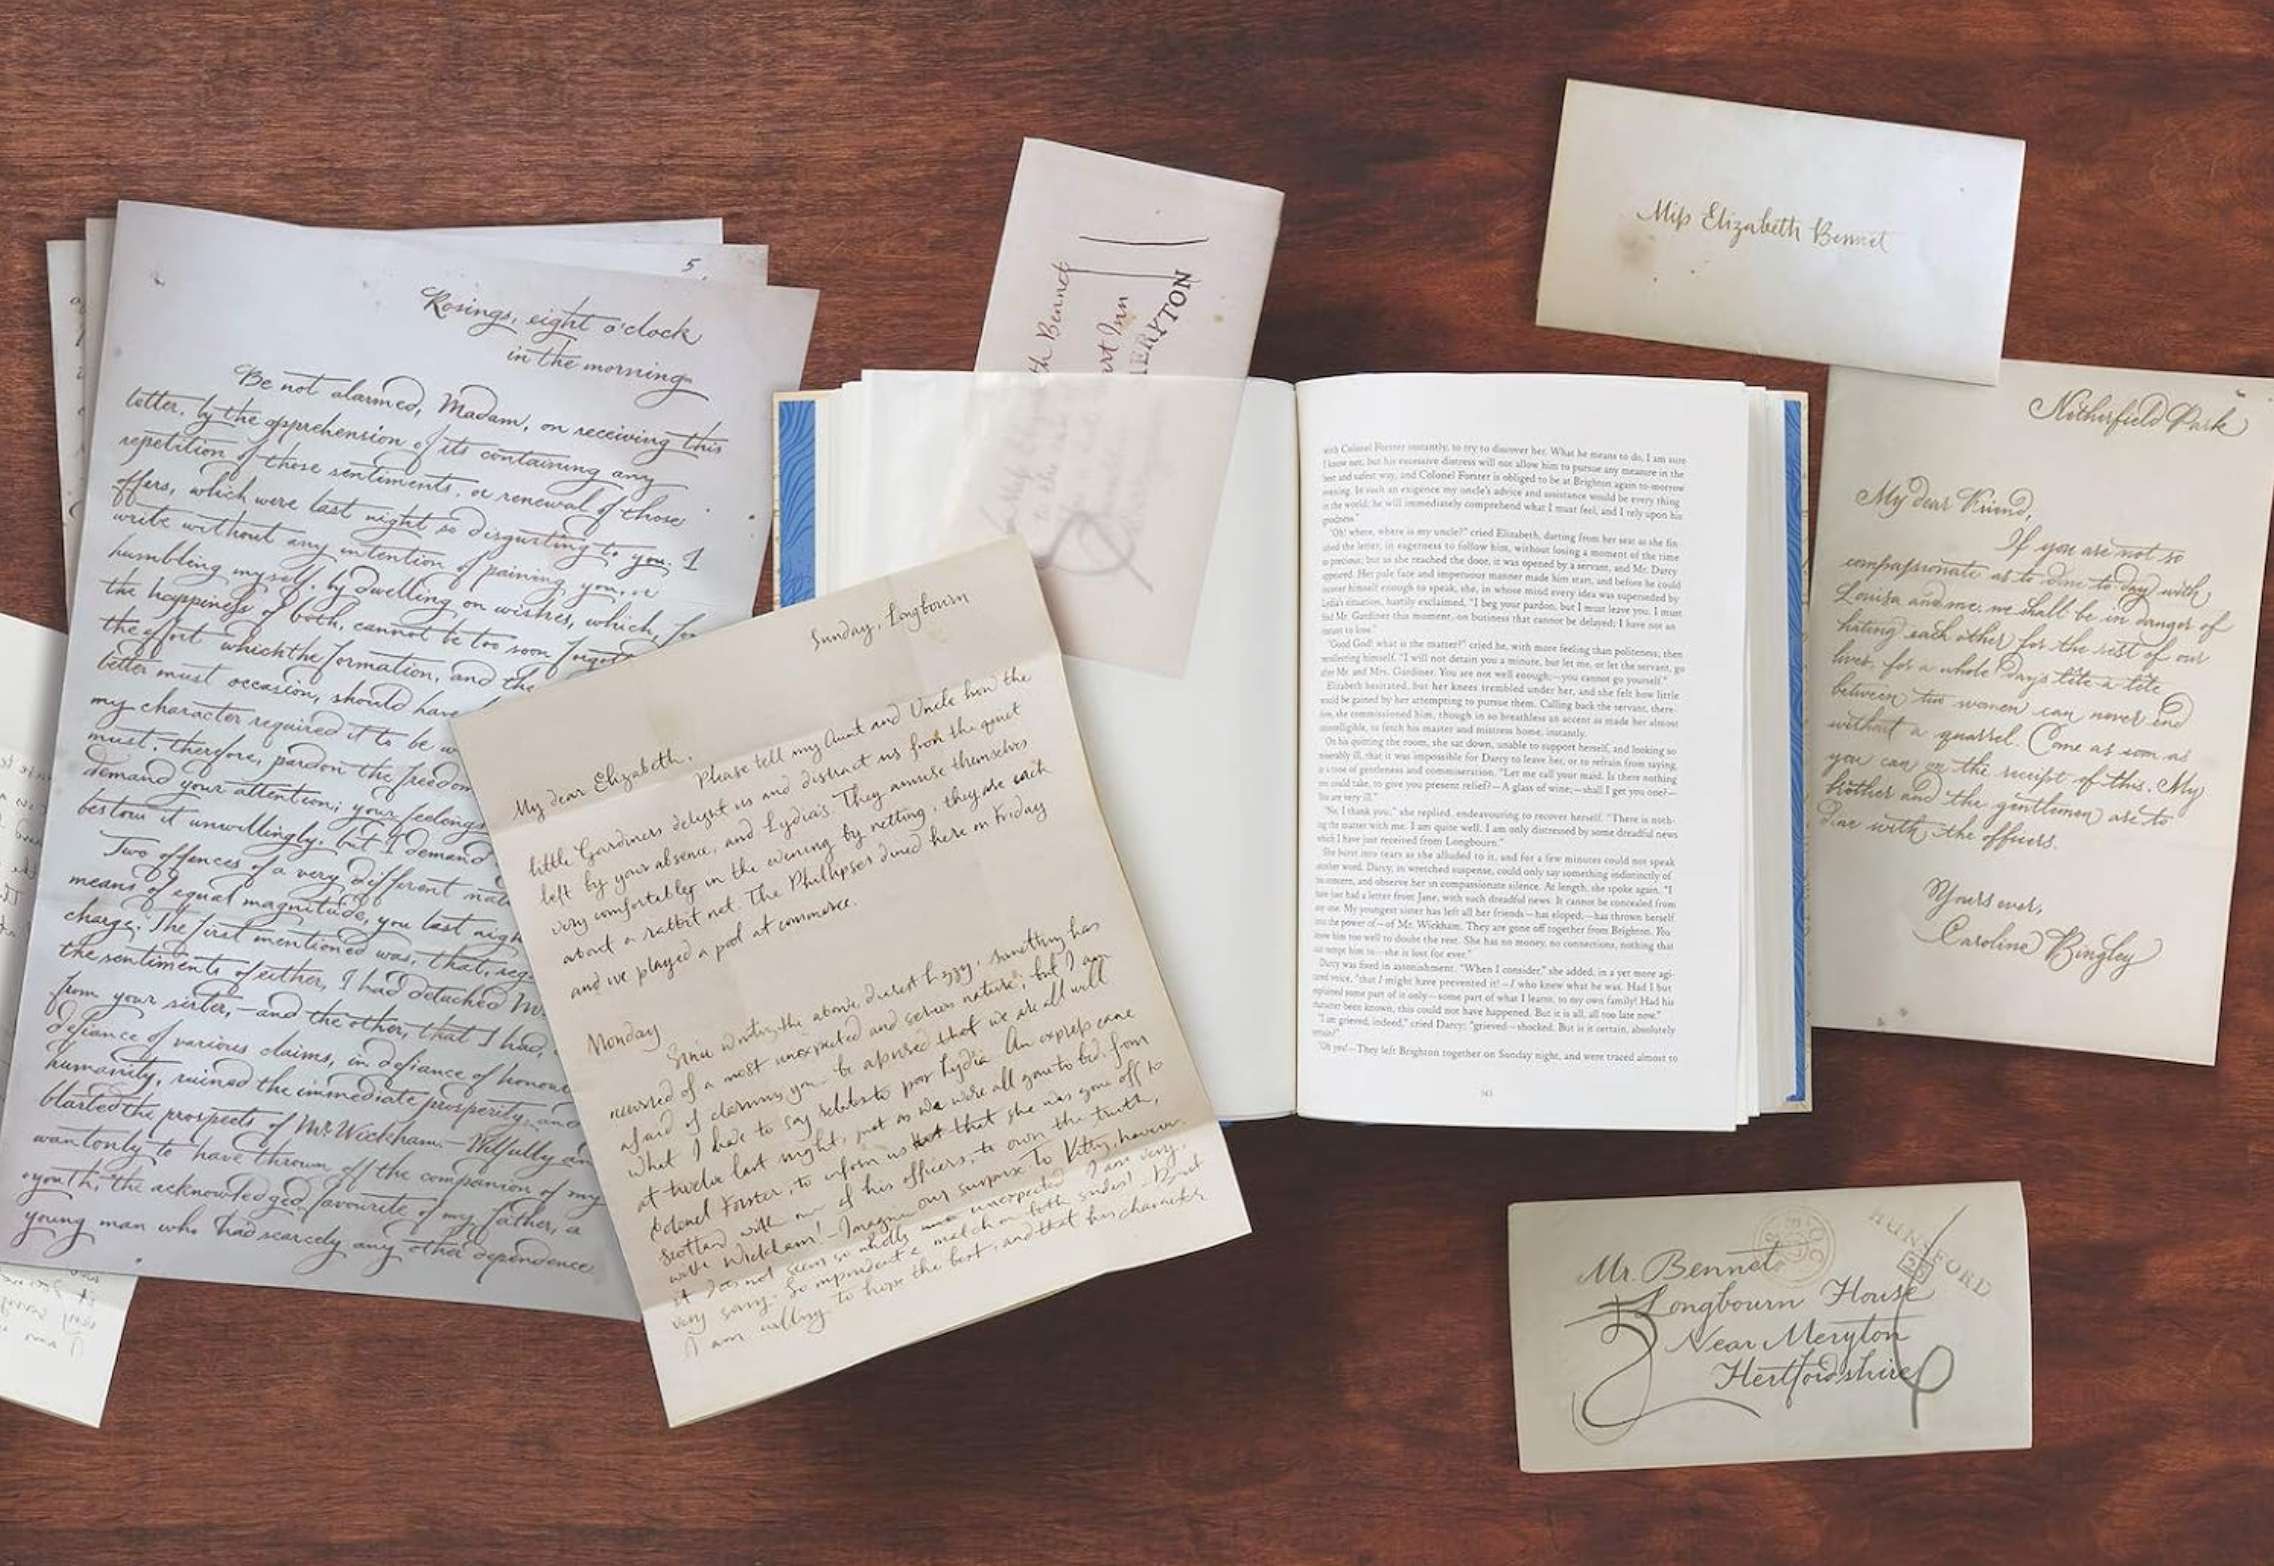 5.
Rosings, eight o'clock
in the morning
Be not alarmed, Madam, on receiving this
letter, by the apprehension of its containing any
repetition of those sentiments, or renewal of those
offers, which were last night so disgusting to you. I
write without any intention of paining you, or
humbling myself, by dwelling on wishes, which, for
the happiness of both, cannot be too soon forgott
the effort which the formation, and the
better must occasion, should have
my character required it to be w
must, therefore, pardon the freedom
demand your attention; your feelings
bestow it unwillingly, but I demand
Two offences of a very different natu
means of equal magnitude, you last nigh
charge. The first mentioned was, that, rega
the sentiments of either, I had detached Mr.
from your sister,—and the other, that I had,
defiance of various claims, in defiance of honour
humanity, ruined the immediate prosperity, and
blasted the prospects of Mr. Wickham.—Wilfully an
wantonly to have thrown off the companion of my
youth, the acknowledged favourite of my father, a
young man who had scarcely any other dependence
Sunday, Longbourn
My dear Elizabeth,
Please tell my Aunt and Uncle how the
little Gardiners delight us and distract us from the quiet
left by your absence, and Lydia's. They amuse themselves
very comfortably in the evening by netting, they are each
about a rabbit net. The Phillipses dined here on Friday
and we played a pool at commerce.
Monday
Since writing the above, dearest Lizzy, something has
occurred of a most unexpected and serious nature; but I am
afraid of alarming you—be assured that we are all well.
What I have to say relates to poor Lydia. An express came
at twelve last night, just as we were all gone to bed, from
Colonel Forster, to inform us that she was gone off to
Scotland with one of his officers, to own the truth,
with Wickham!—Imagine our surprise. To Kitty, however,
it does not seem so wholly unexpected. I am very,
very sorry. So imprudent a match on both sides!—But
I am willing to hope the best, and that his character
th Bennet
rt Inn
ERYTON
with Colonel Forster instantly, to try to discover her. What he means to do, I am sure
I know not; but his excessive distress will not allow him to pursue any measure in the
best and safest way, and Colonel Forster is obliged to be at Brighton again to-morrow
evening. In such an exigence my uncle's advice and assistance would be every thing
in the world; he will immediately comprehend what I must feel, and I rely upon his
goodness."
"Oh! where, where is my uncle?" cried Elizabeth, darting from her seat as she fin-
ished the letter, in eagerness to follow him, without losing a moment of the time
so precious; but as she reached the door, it was opened by a servant, and Mr. Darcy
appeared. Her pale face and impetuous manner made him start, and before he could
recover himself enough to speak, she, in whose mind every idea was superseded by
Lydia's situation, hastily exclaimed, "I beg your pardon, but I must leave you. I must
find Mr. Gardiner this moment, on business that cannot be delayed; I have not an
instant to lose."
"Good God! what is the matter?" cried he, with more feeling than politeness; then
recollecting himself, "I will not detain you a minute, but let me, or let the servant, go
after Mr. and Mrs. Gardiner. You are not well enough;—you cannot go yourself."
Elizabeth hesitated, but her knees trembled under her, and she felt how little
would be gained by her attempting to pursue them. Calling back the servant, there-
fore, she commissioned him, though in so breathless an accent as made her almost
unintelligible, to fetch his master and mistress home, instantly.
On his quitting the room, she sat down, unable to support herself, and looking so
miserably ill, that it was impossible for Darcy to leave her, or to refrain from saying,
in a tone of gentleness and commiseration, "Let me call your maid. Is there nothing
you could take, to give you present relief?—A glass of wine;—shall I get you one?—
You are very ill."
"No, I thank you;" she replied, endeavouring to recover herself. "There is noth-
ing the matter with me. I am quite well. I am only distressed by some dreadful news
which I have just received from Longbourn."
She burst into tears as she alluded to it, and for a few minutes could not speak
another word. Darcy, in wretched suspense, could only say something indistinctly of
his concern, and observe her in compassionate silence. At length, she spoke again. "I
have just had a letter from Jane, with such dreadful news. It cannot be concealed from
any one. My youngest sister has left all her friends—has eloped;—has thrown herself
into the power of—of Mr. Wickham. They are gone off together from Brighton. You
know him too well to doubt the rest. She has no money, no connections, nothing that
can tempt him to—she is lost for ever."
Darcy was fixed in astonishment. "When I consider," she added, in a yet more agi-
tated voice, "that I might have prevented it!—I who knew what he was. Had I but
explained some part of it only—some part of what I learnt, to my own family! Had his
character been known, this could not have happened. But it is all, all too late now."
"I am grieved, indeed," cried Darcy; "grieved—shocked. But is it certain, absolutely
certain?"
"Oh yes!—They left Brighton together on Sunday night, and were traced almost to
Miss Elizabeth Bennet
Netherfield Park
My dear Friend,
If you are not so
compassionate as to dine to-day with
Louisa and me, we shall be in danger of
hating each other for the rest of our
lives, for a whole day's tête-à-tête
between two women can never end
without a quarrel. Come as soon as
you can on the receipt of this. My
brother and the gentlemen are to
dine with the officers.
Yours ever,
Caroline Bingley
HUNSFORD
Mr. Bennet
Longbourn House
Near Meryton
Hertfordshire